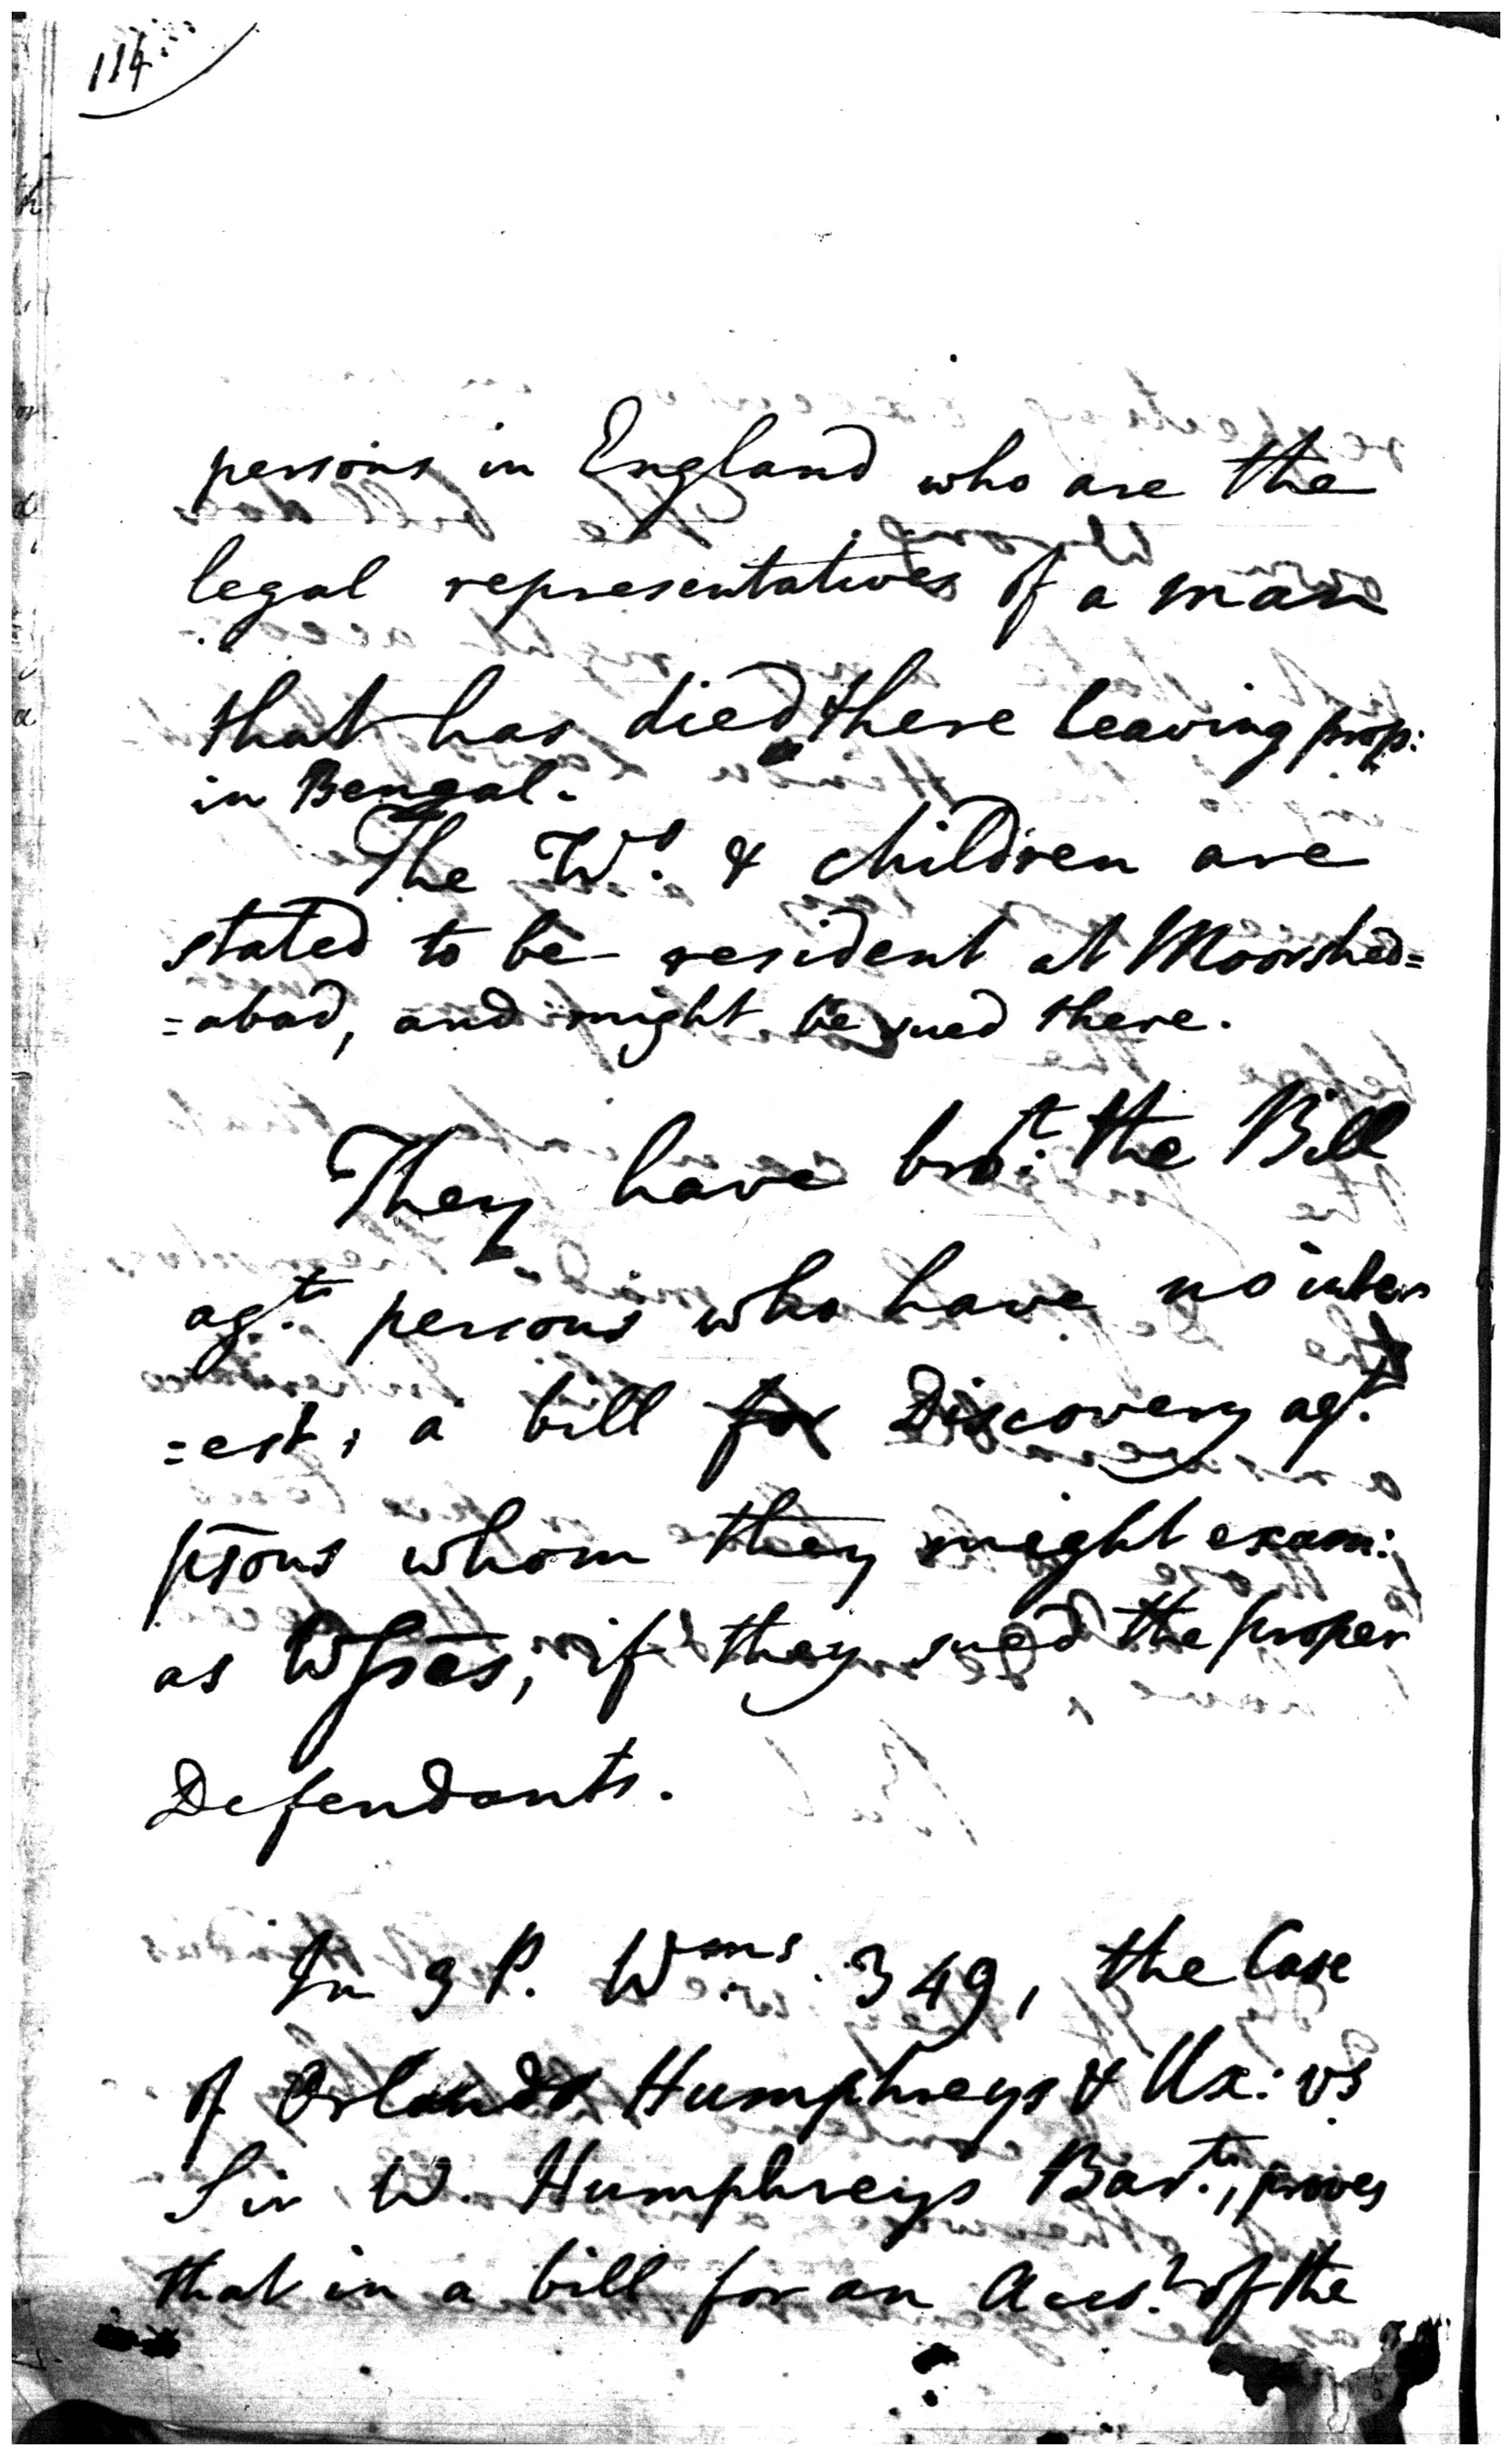 114
persons in England who are the
legal representatives of a man
that has died there leaving prop:
in Bengal.
The Ws. & children are
stated to be resident at Moorshed=
=abad, and might be sued there.
They have brot. the Bill
agt. persons who have no inter
=est, a bill for Discovery agt.
psons whom they might exam:
as Wsses, if they sued the proper
Defendants.
In 3 P. Wms. 349, the Case
of Orlando Humphreys & Ux: vs.
Sir W. Humphreys Bart., proves
that in a bill for an Acct. of the